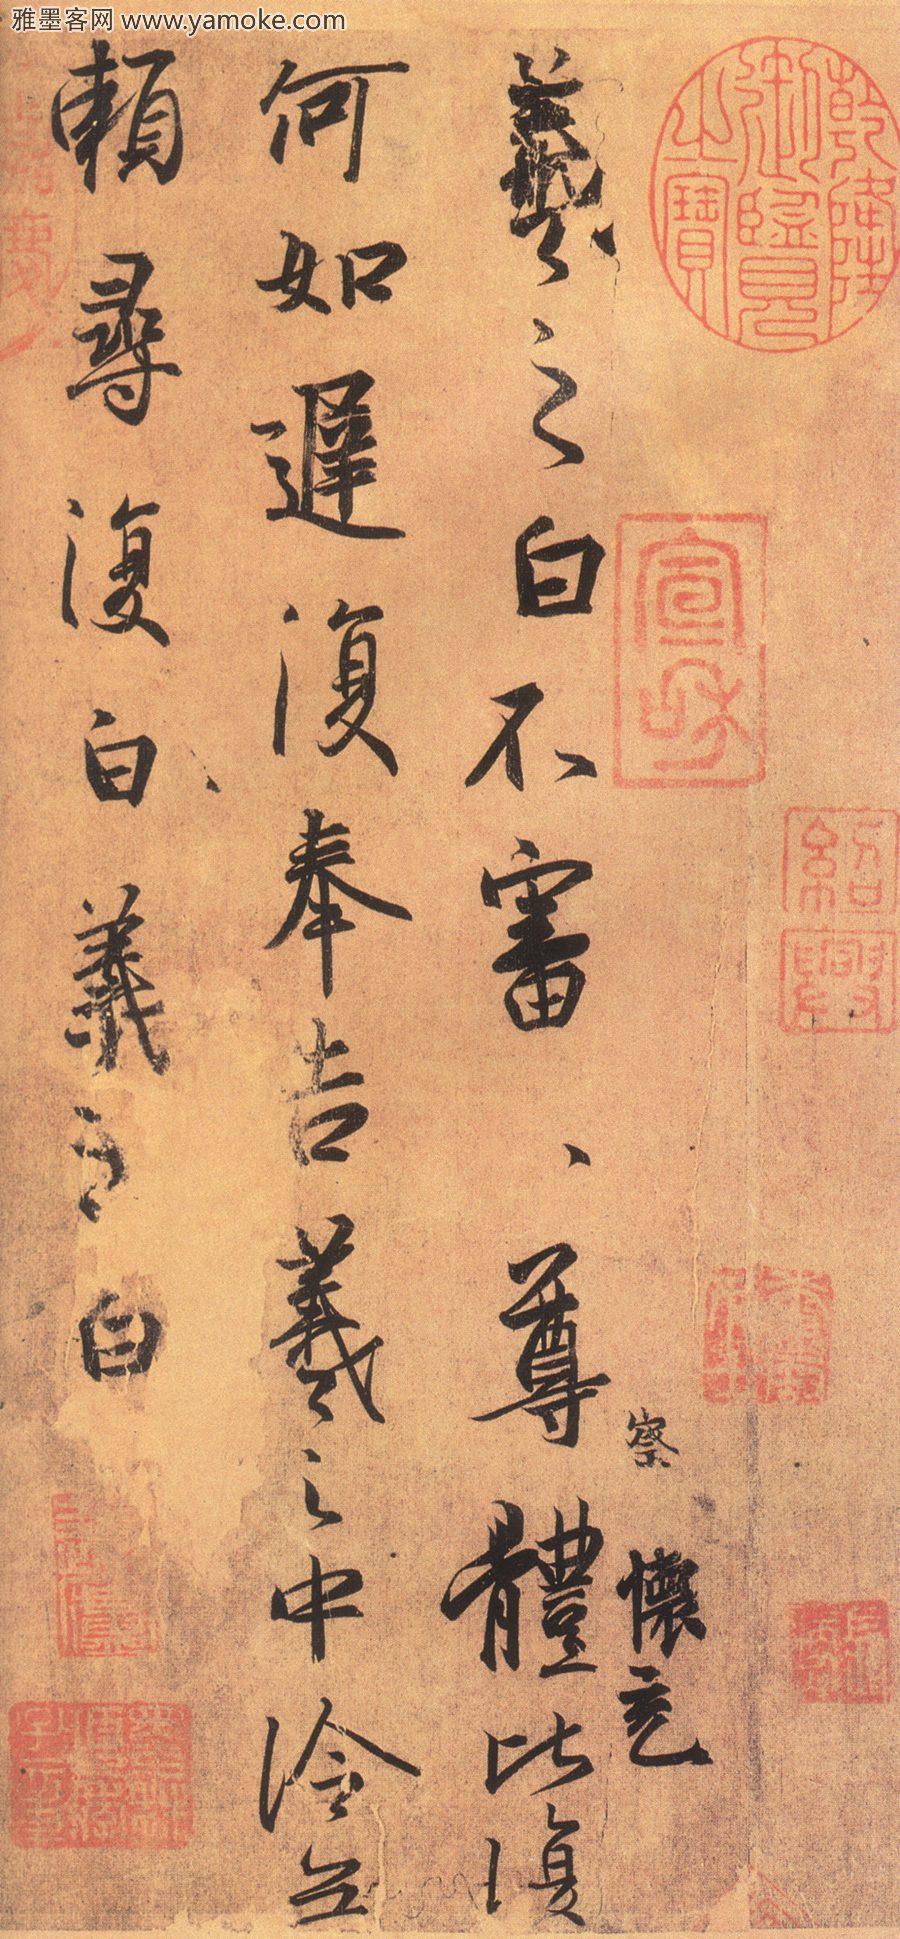 雅墨客网 www.yamoke.com
乾隆
御覽
之寶
宣和
紹興
察
懷充
羲之白不審、、尊體比復
何如遲復奉告羲之中冷無
賴尋復白羲之白